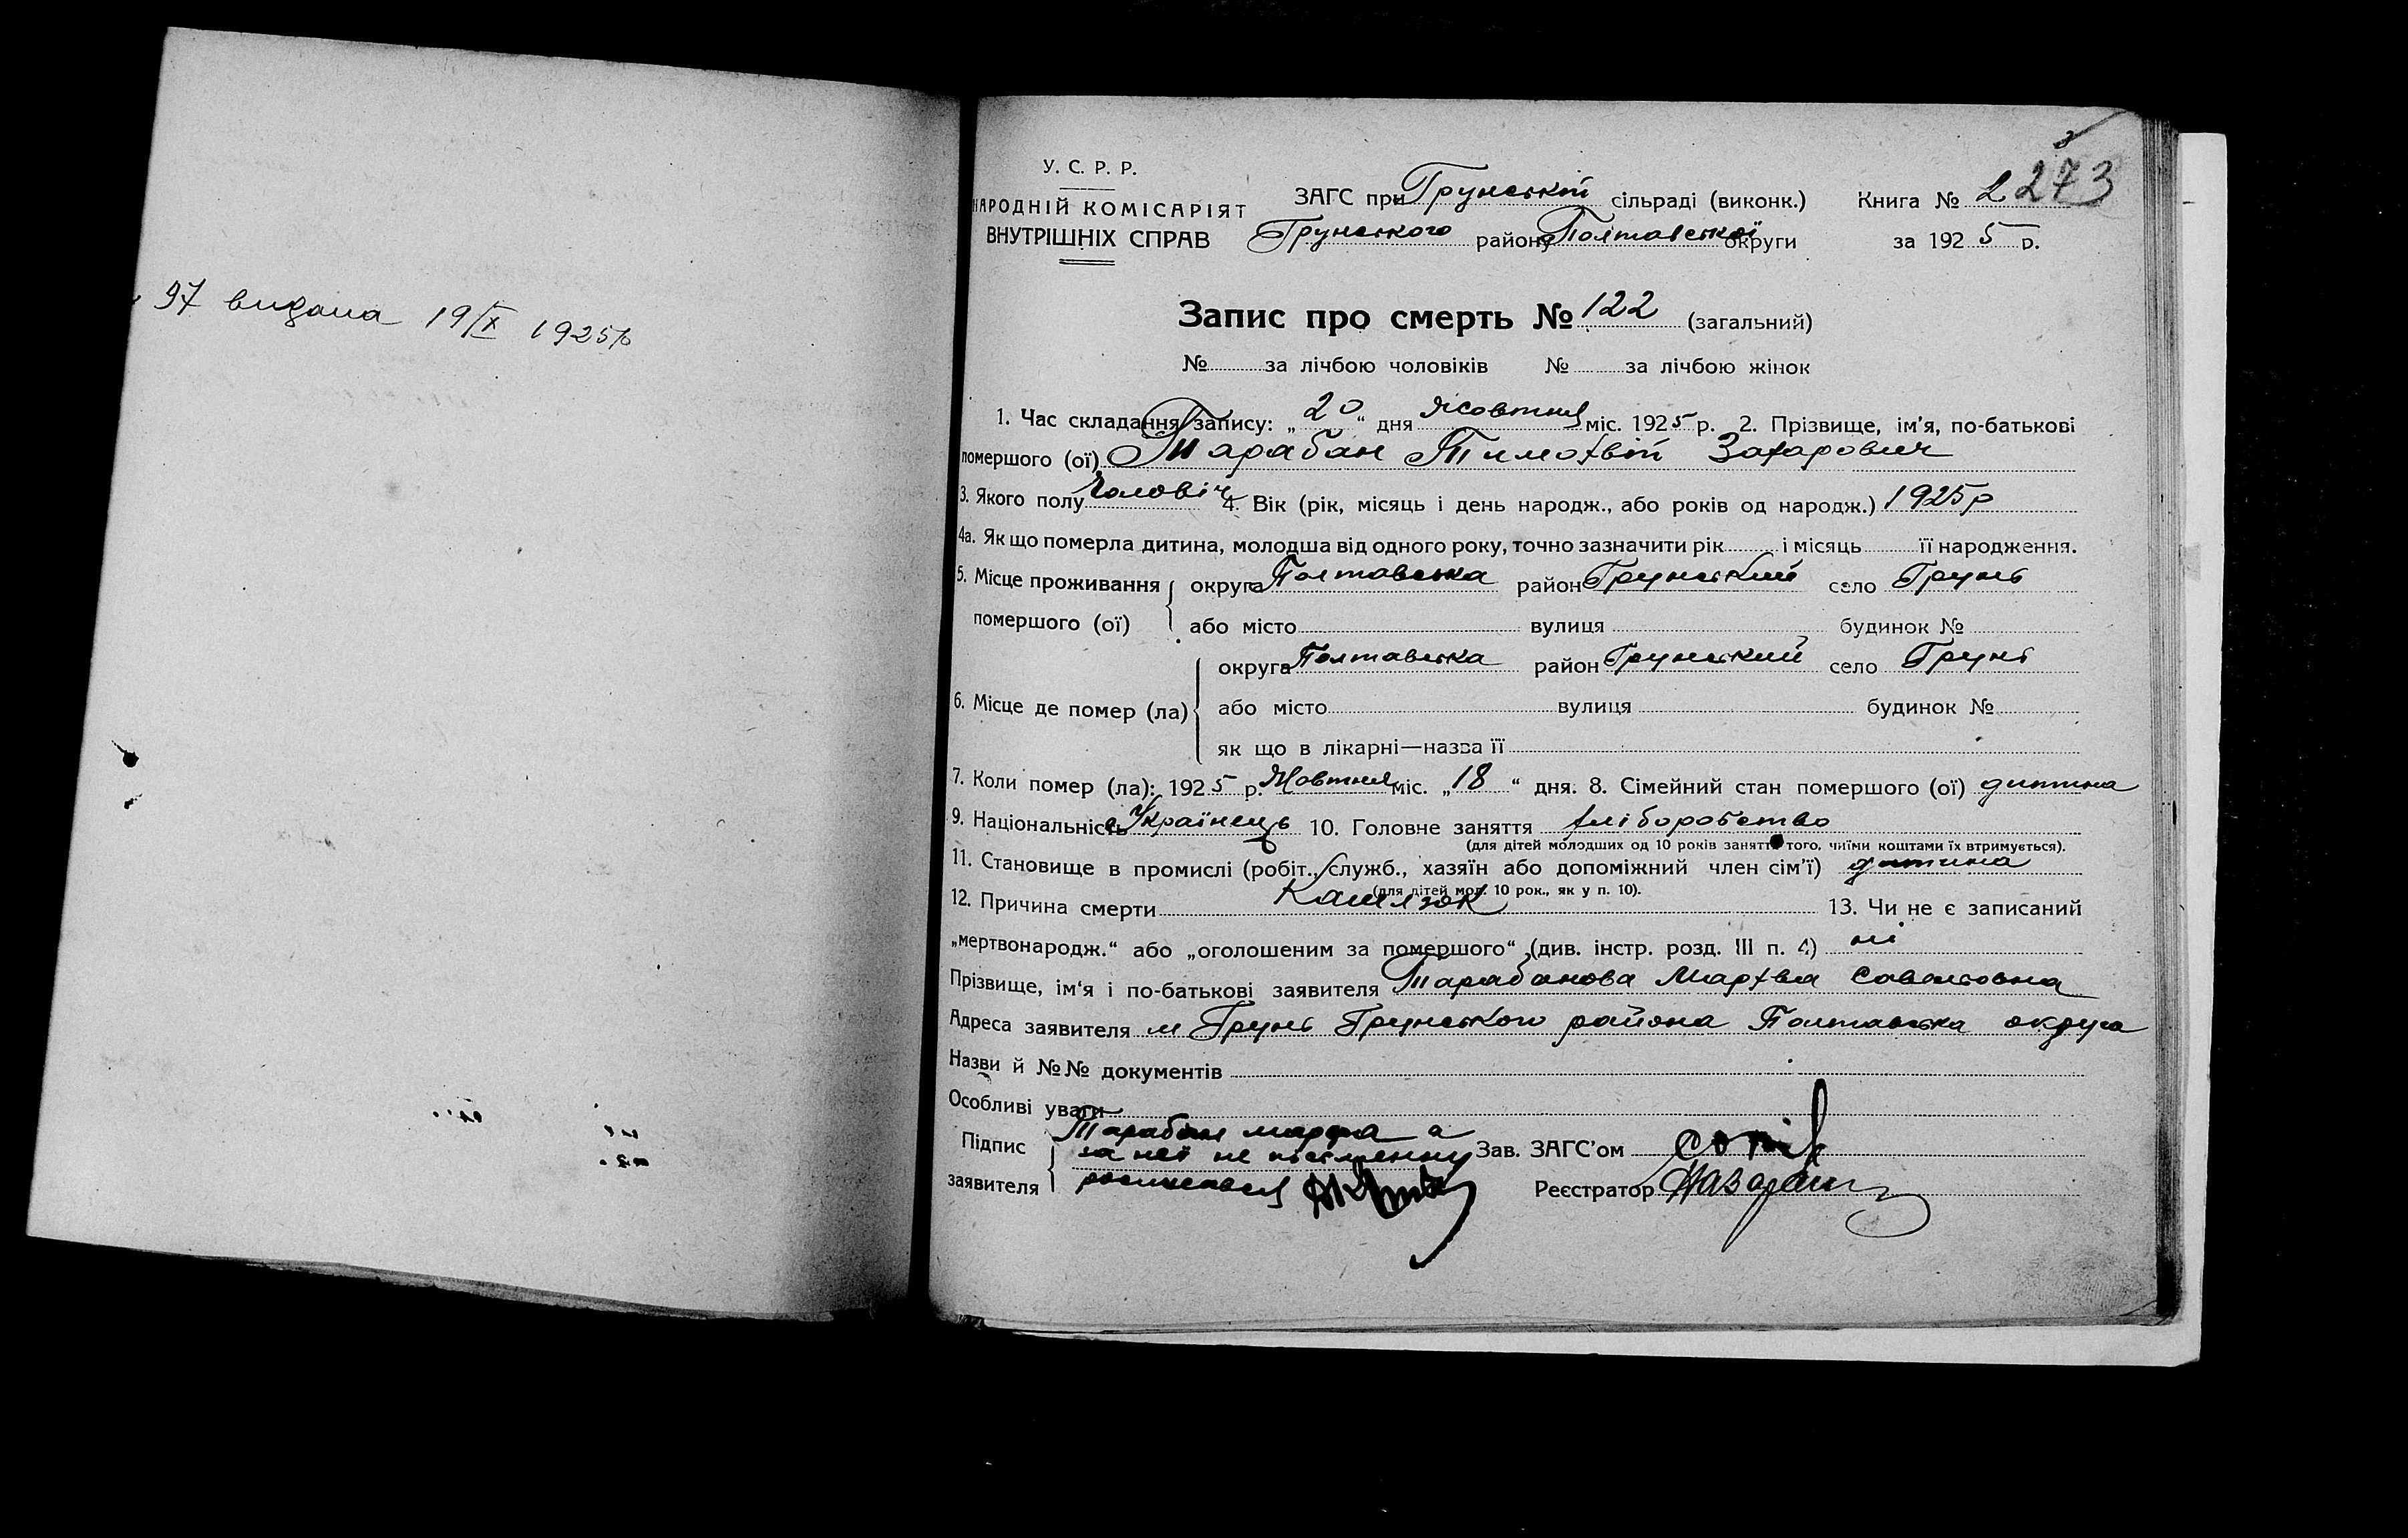 97 видана 19/X 1925 р
273
У. С. Р. Р.
НАРОДНІЙ КОМІСАРІЯТ
ВНУТРІШНІХ СПРАВ
ЗАГС при Грунській сільраді (виконк.) Книга № 2
Грунського району Полтавської округи за 1925 р.
Запис про смерть № 122 (загальний)
№ за лічбою чоловіків № за лічбою жінок
1. Час складання запису: „20“ дня Жовтня міс. 1925 р. 2. Прізвище, ім'я, по-батькові
помершого (ої) Тарабан Тимохвій Захарович
3. Якого полу чоловіч 4. Вік (рік, місяць і день народж., або років од народж.) 1925 р
4а. Як що померла дитина, молодша від одного року, точно зазначити рік і місяць її народження.
5. Місце проживання округа Полтавська район Грунський село Грунь
помершого (ої) або місто вулиця будинок №
округа Полтавська район Грунський село Грунь
6. Місце де помер (ла) або місто вулиця будинок №
як що в лікарні—назва її
7. Коли помер (ла): 1925 р. Жовтня міс. „18“ дня. 8. Сімейний стан помершого (ої) дитина
9. Національність Українець 10. Головне заняття хліборобство
(для дітей молодших од 10 років заняття того, чиїми коштами їх втримується).
11. Становище в промислі (робіт., служб., хазяїн або допоміжний член сім'ї) дитина
(для дітей мол. 10 рок., як у п. 10).
12. Причина смерти Кашлюк 13. Чи не є записаний
„мертвонародж.“ або „оголошеним за помершого“ (див. інстр. розд. III п. 4) ні
Прізвище, ім'я і по-батькові заявителя Тарабанова Мархва
Адреса заявителя м Грунь Грунського района Полтавська округа
Назви й №№ документів
Особливі уваги
Підпис Тарабан марфа а
за неї не письменну Зав. ЗАГС'ом
заявителя росписався Реєстратор